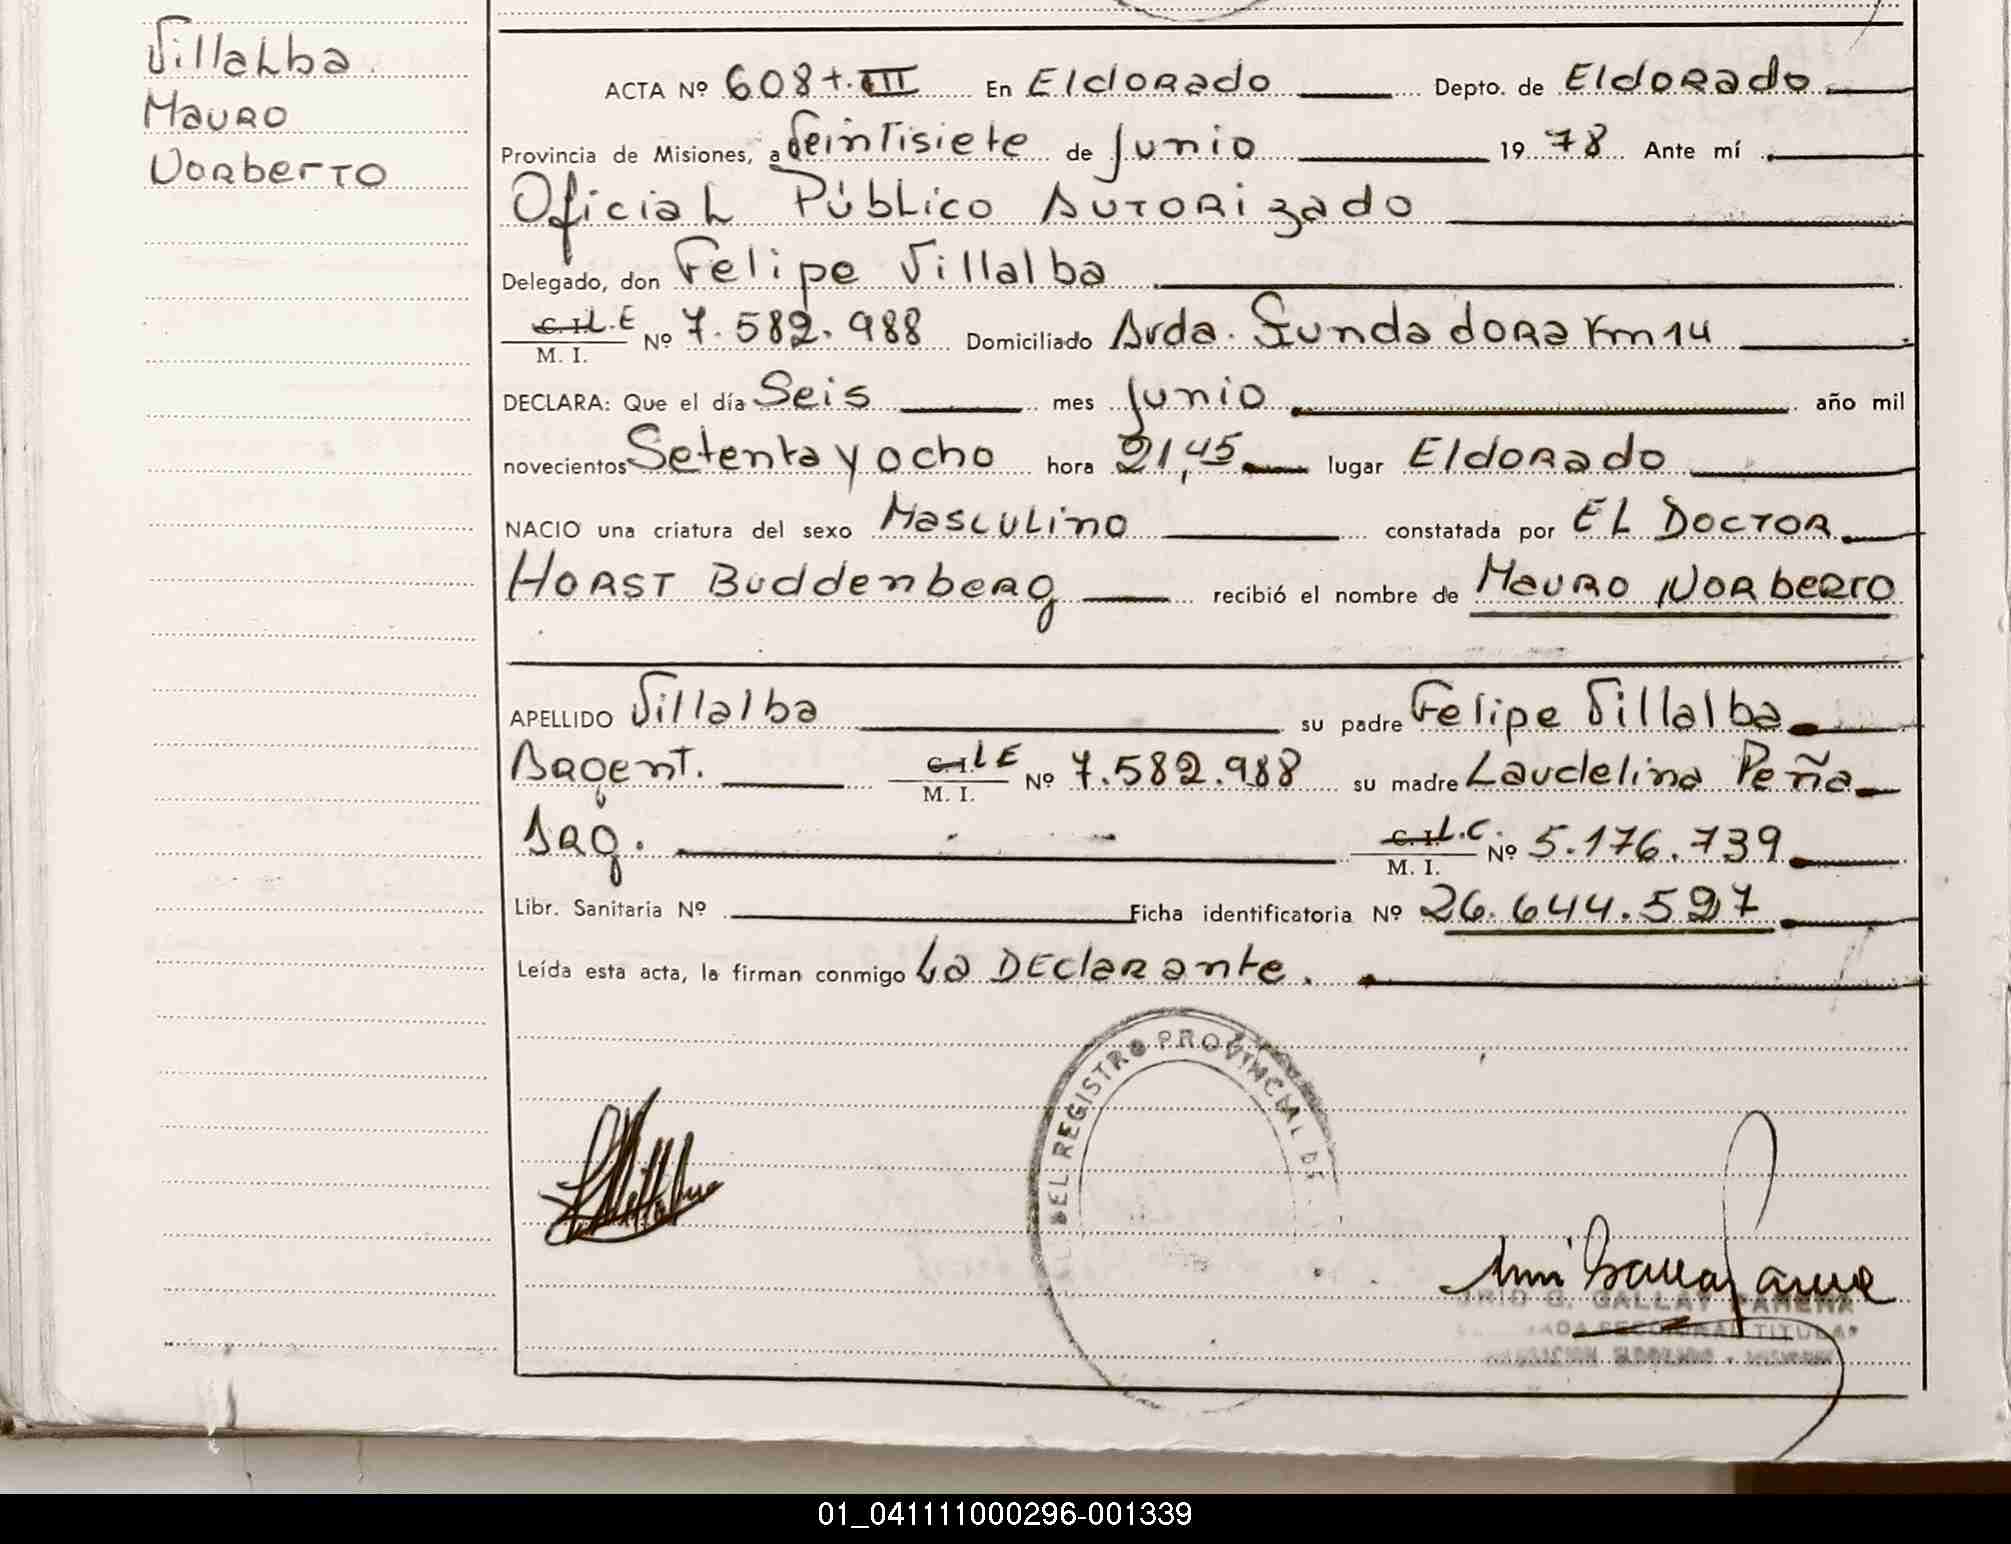 Villalba
Mauro
Norberto
ACTA Nº 608 t. III En Eldorado Depto. de Eldorado
Provincia de Misiones, a Veintisiete de Junio 1978 Ante mí
Oficial Público Autorizado
Delegado, don Felipe Villalba
C. I. L.E M. I. Nº 7.582.988 Domiciliado Avda. Fundadora Km 14
DECLARA: Que el día Seis mes Junio año mil
novecientos Setenta y ocho hora 21,45 lugar Eldorado
NACIO una criatura del sexo Masculino constatada por EL Doctor
Horst Buddenberg recibió el nombre de Mauro Norberto
APELLIDO Villalba su padre Felipe Villalba
Argent. C. I. L E M. I. Nº 7.582.988 su madre Laudelina Peña
Arg. C. I. L.C. M. I. Nº 5.176.739
Libr. Sanitaria Nº Ficha identificatoria Nº 26.644.597
Leída esta acta, la firman conmigo La Declarante.
DEL REGISTRO PROVINCIAL DE
G. GALLAY
SECCIONAL TITULAR
01_041111000296-001339